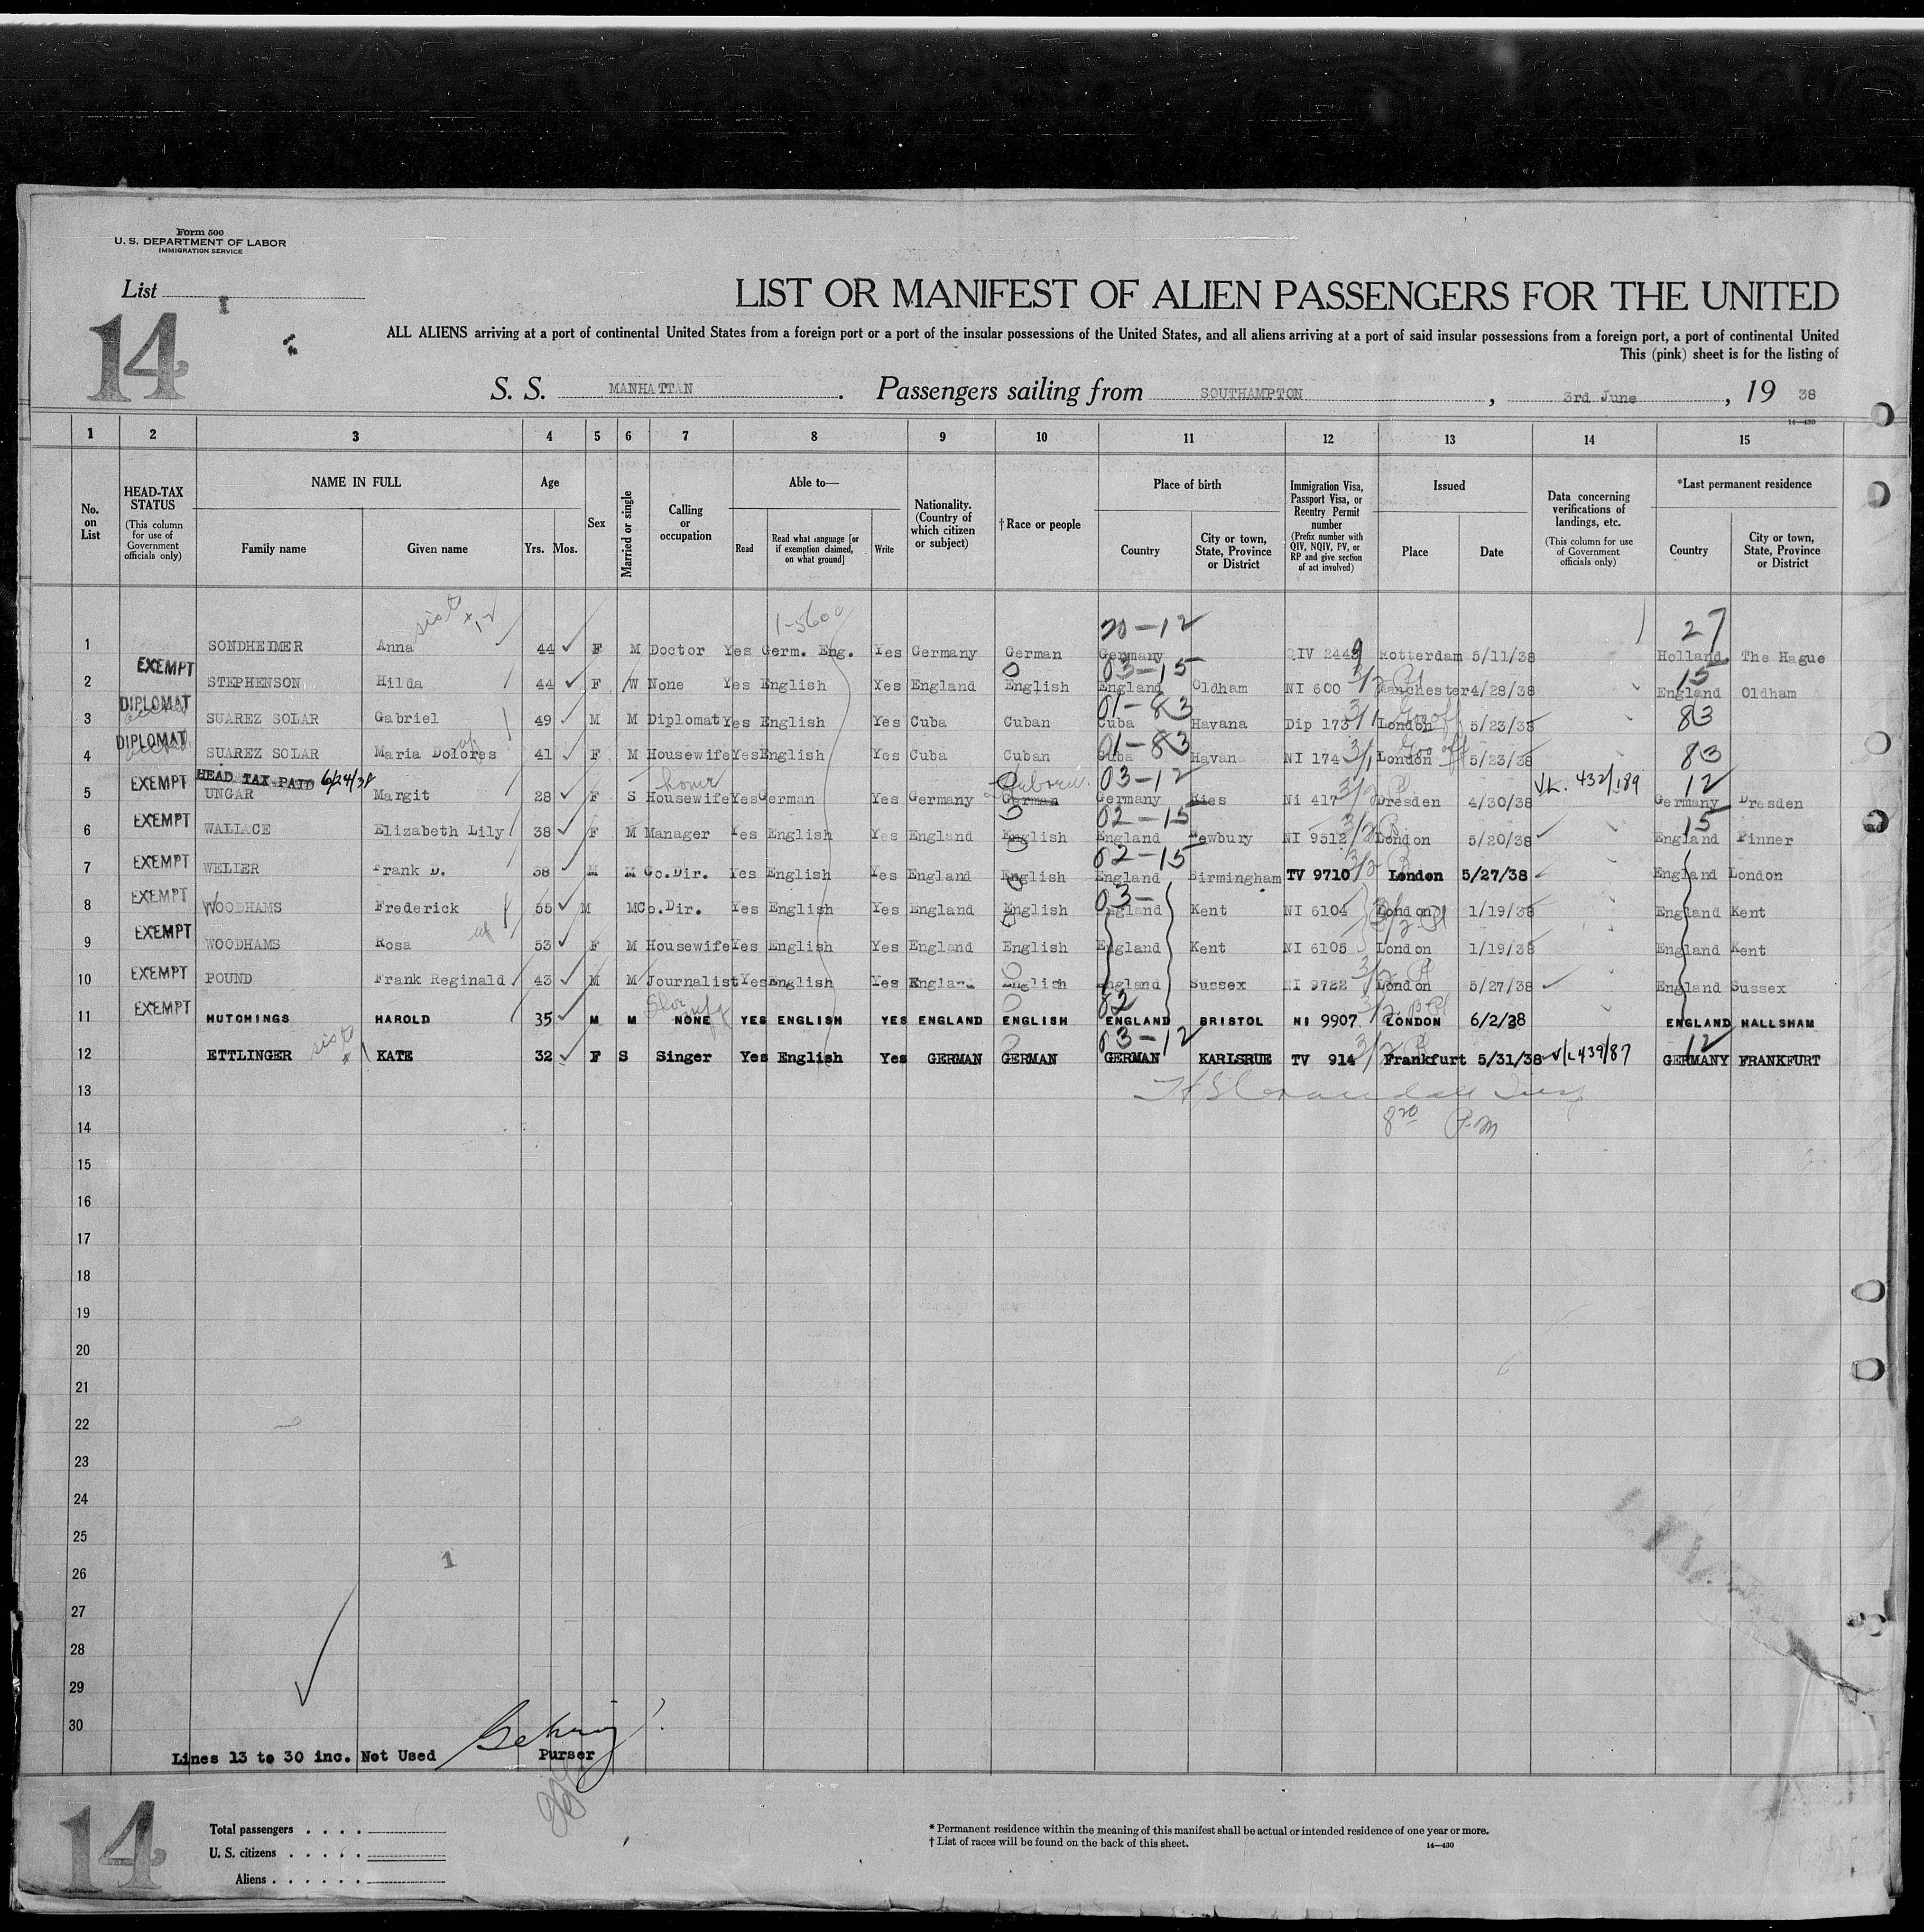 Form 500
U. S. DEPARTMENT OF LABOR
IMMIGRATION SERVICE
List
14
LIST OR MANIFEST OF ALIEN PASSENGERS FOR THE UNITED
ALL ALIENS arriving at a port of continental United States from a foreign port or a port of the insular possessions of the United States, and all aliens arriving at a port of said insular possessions from a foreign port, a port of continental United
This (pink) sheet is for the listing of
S. S. MANHATTAN. Passengers sailing from SOUTHAMPTON, 3rd June, 19 38
14—430
1 2 3 4 5 6 7 8 9 10 11 12 13 14 15
No. on List
HEAD-TAX STATUS (This column for use of Government officials only)
NAME IN FULL
Family name Given name
Age
Yrs. Mos.
Sex
Married or single
Calling or occupation
Able to—
Read Read what language [or if exemption claimed, on what ground] Write
Nationality. (Country of which citizen or subject)
†Race or people
Place of birth
Country City or town, State, Province or District
Immigration Visa, Passport Visa, or Reentry Permit number (Prefix number with QIV, NQIV, PV, or RP and give section of act involved)
Issued
Place Date
Data concerning verifications of landings, etc. (This column for use of Government officials only)
*Last permanent residence
Country City or town, State, Province or District
20-12 27
1 SONDHEIMER Anna 44 F M Doctor Yes Germ. Eng. Yes Germany German Germany QIV 2449 Rotterdam 5/11/38 Holland The Hague
EXEMPT 03-15 15
2 STEPHENSON Hilda 44 F W None Yes English Yes England English England Oldham NI 600 3/2 Manchester 4/28/38 England Oldham
DIPLOMAT 01-83 83
3 SUAREZ SOLAR Gabriel 49 M M Diplomat Yes English Yes Cuba Cuban Cuba Havana Dip 173 3/1 London 5/23/38
DIPLOMAT 01-83 83
4 SUAREZ SOLAR Maria Dolores 41 F M Housewife Yes English Yes Cuba Cuban Cuba Havana NI 174 3/1 London 5/23/38
EXEMPT HEAD TAX PAID 6/24/38 03-12 V/L. 432/189 12
5 UNGAR Margit 28 F S Housewife Yes German Yes Germany German Germany Kies Ni 417 3/2 Dresden 4/30/38 Germany Dresden
EXEMPT 02-15 15
6 WALLACE Elizabeth Lily 38 F M Manager Yes English Yes England English England Newbury NI 9512 3/2 London 5/20/38 England Pinner
EXEMPT 02-15
7 WELIER Frank D. 38 M M Co.Dir. Yes English Yes England English England Birmingham TV 9710 3/2 London 5/27/38 England London
EXEMPT 03-
8 WOODHAMS Frederick 55 M M Co.Dir. Yes English Yes England English England Kent NI 6104 London 1/19/38 England Kent
EXEMPT
9 WOODHAMS Rosa 53 F M Housewife Yes English Yes England English England Kent NI 6105 London 1/19/38 England Kent
EXEMPT
10 POUND Frank Reginald 43 M M Journalist Yes English Yes England English England Sussex NI 9722 3/2 London 5/27/38 England Sussex
EXEMPT 02
11 HUTCHINGS HAROLD 35 M M NONE YES ENGLISH YES ENGLAND ENGLISH ENGLAND BRISTOL NI 9907 LONDON 6/2/38 ENGLAND HALLSHAM
03-12 12
12 ETTLINGER KATE 32 F S Singer Yes English Yes GERMAN GERMAN GERMAN KARLSRUE TV 914 3/2 Frankfurt 5/31/38 V/L 439/87 GERMANY FRANKFURT
13
14 8 20 P.M
15
16
17
18
19
20
21
22
23
24
25
26
27
28
29
30
Lines 13 to 30 inc. Not Used Purser
14
Total passengers
U. S. citizens
Aliens
* Permanent residence within the meaning of this manifest shall be actual or intended residence of one year or more.
† List of races will be found on the back of this sheet. 14—430